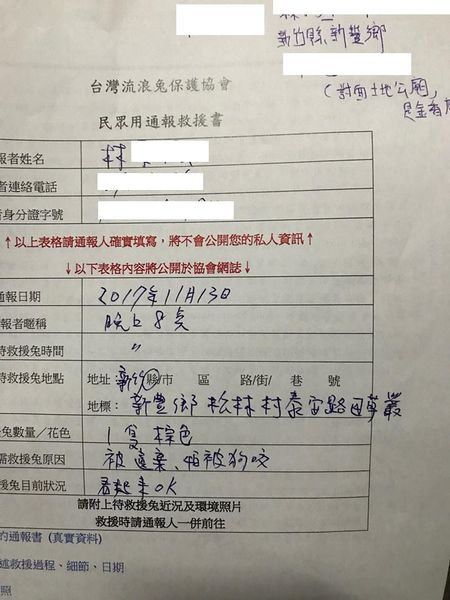 新竹縣新豐鄉
(對面土地公廟,
台灣流浪兔保護協會
民眾用通報救援書
報者姓名 林
者連絡電話
身分證字號
↑以上表格請通報人確實填寫,將不會公開您的私人資訊↑
↓以下表格內容將公開於協會網誌↓
通報日期 2017年11月13日
報者暱稱 晚上8點
待救援兔時間 〃
待救援兔地點 地址:新竹縣/市 區 路/街/ 巷 號
地標:新豐鄉松林村泰安路田草叢
兔數量／花色 1隻 棕色
需救援兔原因 被遺棄、怕被狗咬
援兔目前狀況 看起來OK
請附上待救援兔近況及環境照片
救援時請通報人一併前往
的通報書 (真實資料)
述救援過程、細節、日期
照